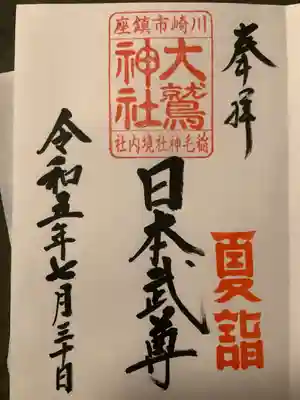 奉拝
夏詣
川崎市鎮座
大鷲
神社
稲毛神社境内社
日本武尊
令和五年七月三十日